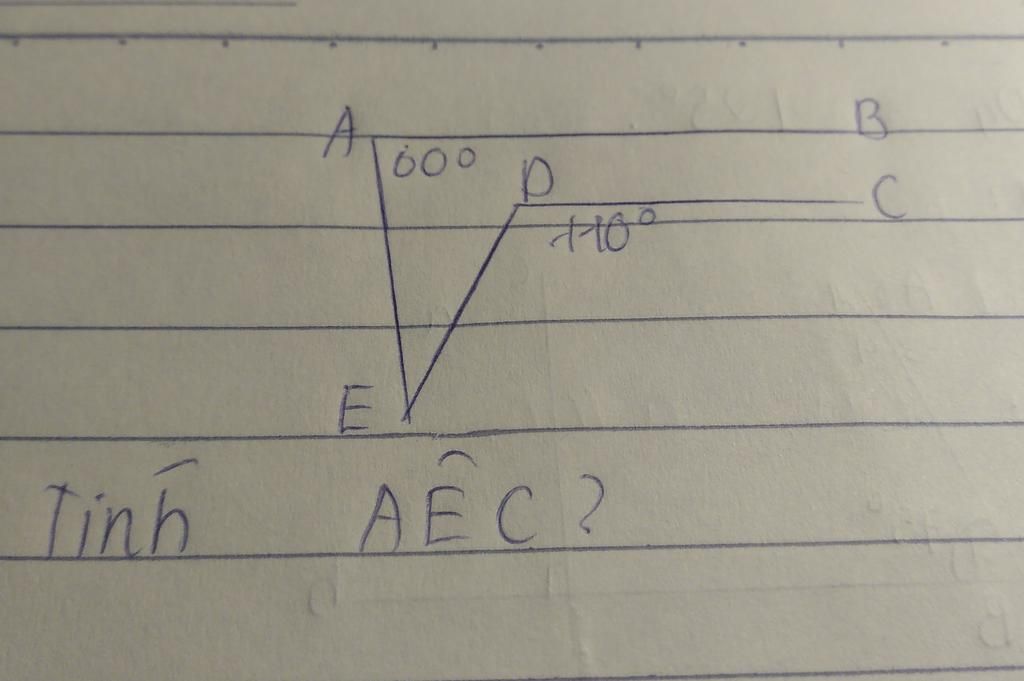 A B
60°
D
C
110°
E
Tính AÊC?